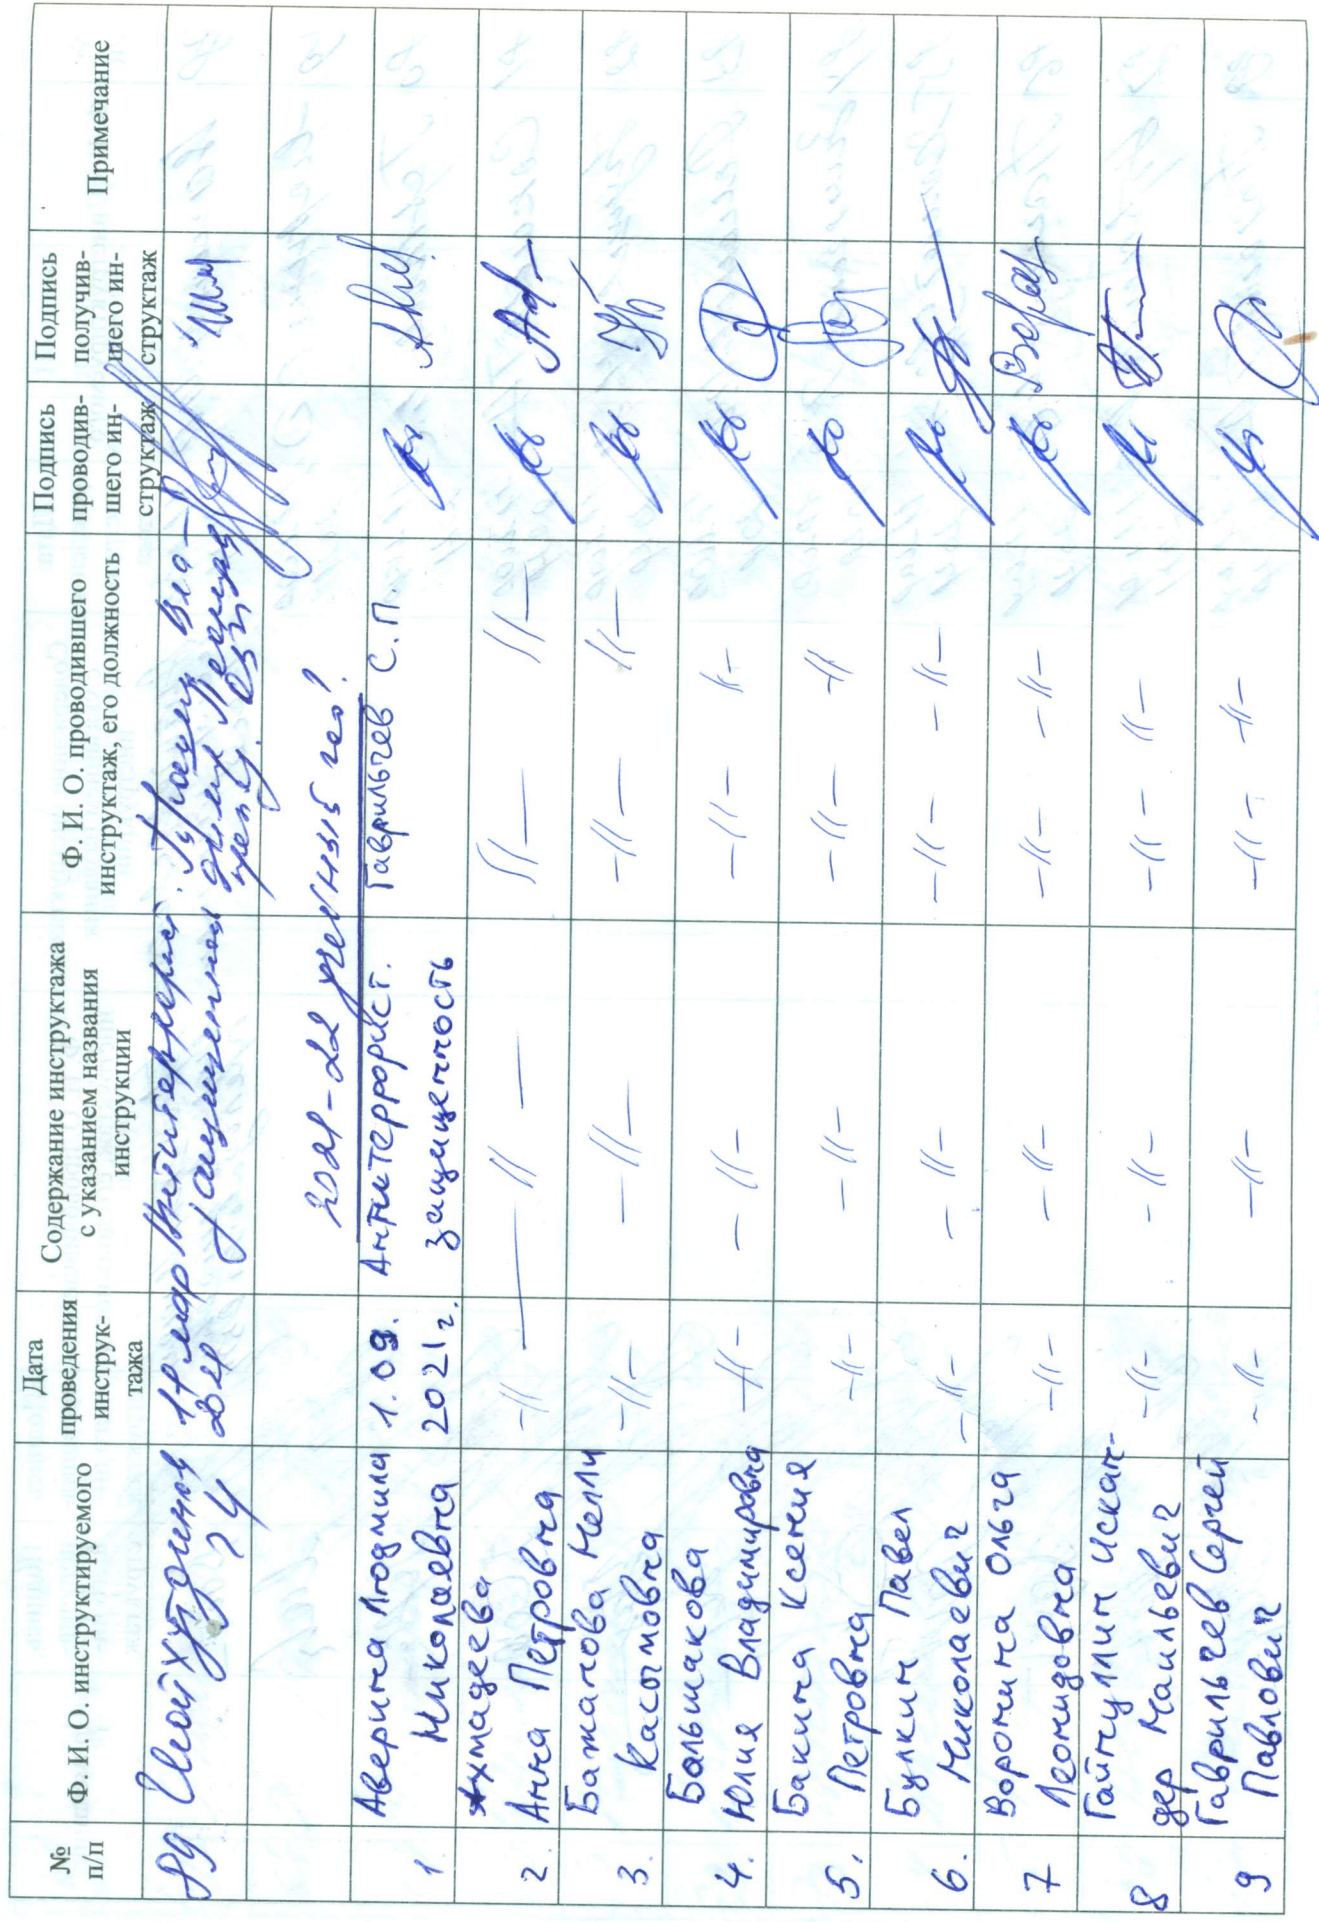 № п/п
Ф. И. О. инструктируемого
Дата проведения инструк-
тажа
Содержание инструктажа
с указанием названия
инструкции
Ф. И. О. проводившего
инструктаж, его должность
Подпись
проводив-
шего ин-
структаж
Подпись
получив-
шего ин-
структаж
Примечание
89
2021-22 учебный год!
1.
Аверина Людмила
Николаевна
1.09.
2021г.
Антитеррорист.
защищенность
Гаврильчев С.П.
2.
Ахмадеева
Анна Петровна
-//-
-//-
//-
//-
3.
Бажанова Нелли
Касымовна
-//-
-//-
-//-
-//-
4.
Большакова
Юлия Владимировна
-//-
-//-
-//-
//-
5.
Бакина Ксения
Петровна
-//-
-//-
-//-
-//
6.
Булкин Павел
Николаевич
-//-
-//-
-//-
-//-
7
Воронина Ольга
Леонидовна
-//-
-//-
-//-
-//-
8
Гайнуллин Искан-
дер Наильевич
-//-
-//-
-//-
//-
9
Гаврильчев Сергей
Павлович
-//-
-//-
-//-
-//-